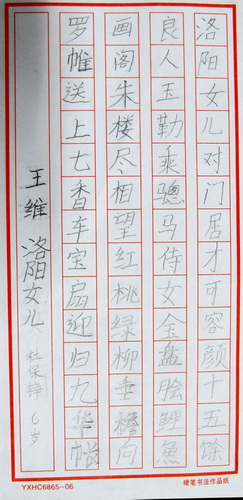 洛阳女儿对门居才可容颜十五馀
良人玉勒乘骢马侍女金盘脍鲤鱼
画阁朱楼尽相望红桃绿柳垂檐向
罗帷送上七香车宝扇迎归九华帐
王维 洛阳女儿 杜保铮 6岁
YXHC6865-06
硬笔书法作品纸